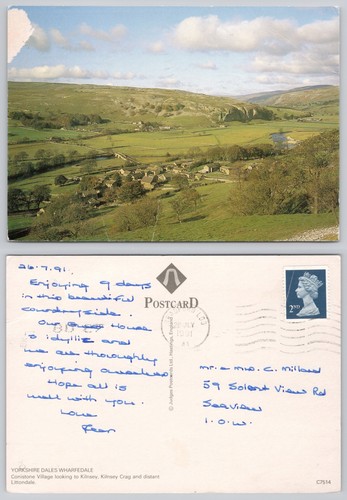 26.7.91.
Enjoying 9 days
in this beautiful
countryside.
Our Guest House
is idyllic and
we are thoroughly
enjoying ourselves.
Hope all is
well with you.
Love
POSTCARD
© Judges Postcards Ltd, Hastings, England
2ND
Mr. & Mrs. C. Millard
59 Solent View Rd
Seaview
I.O.W.
YORKSHIRE DALES WHARFEDALE
Conistone Village looking to Kilnsey, Kilnsey Crag and distant
Littondale.
C7514